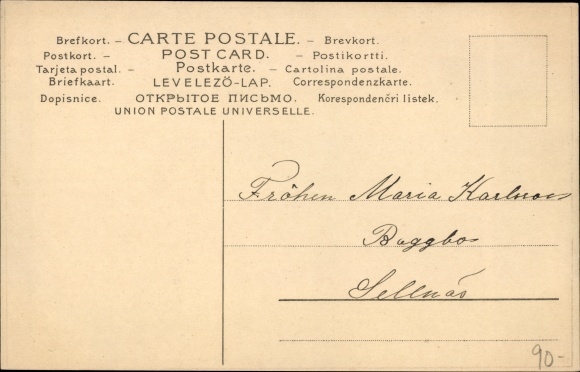 Brefkort. – CARTE POSTALE. – Brevkort.
Postkort. – POST CARD. – Postikortti.
Tarjeta postal. – Postkarte. – Cartolina postale.
Briefkaart. LEVELEZÖ-LAP. Correspondenzkarte.
Dopisnice. ОТКРЫТОЕ ПИСЬМО. Korespondenčri listek.
UNION POSTALE UNIVERSELLE.
Fröken Maria Karlsson
Baggbo
Sellnäs
90-